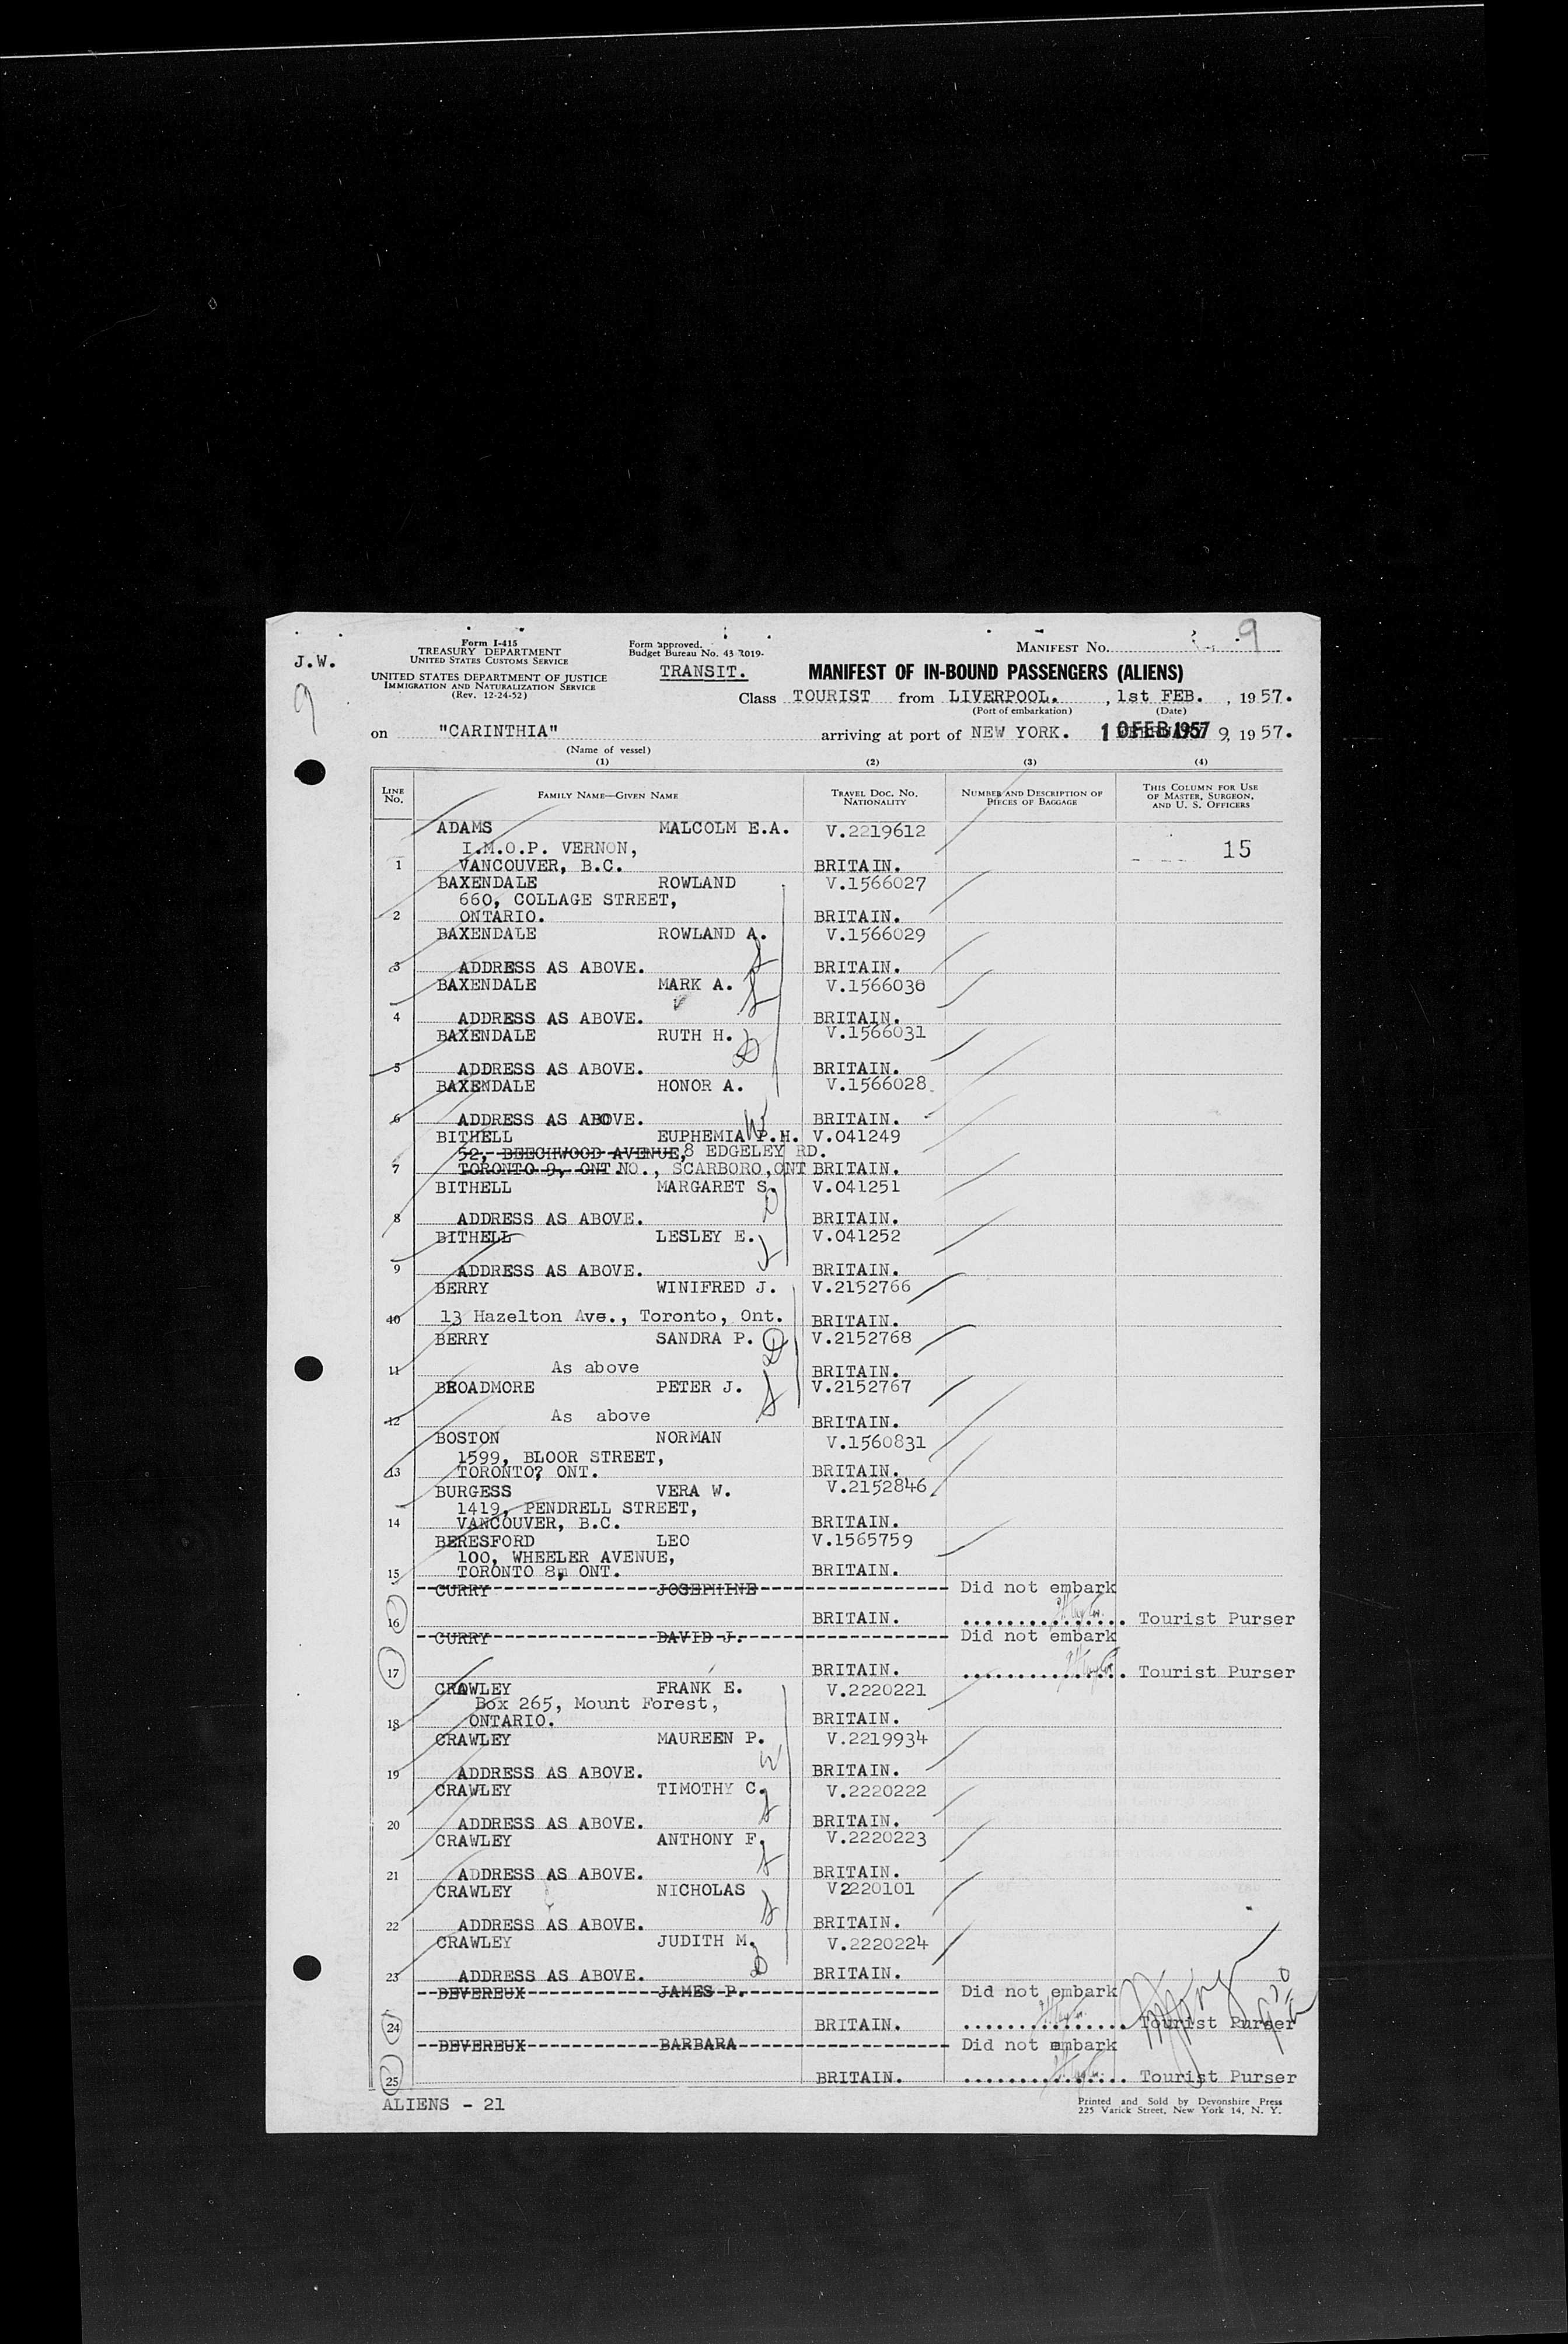 Form I-415
TREASURY DEPARTMENT
UNITED STATES CUSTOMS SERVICE
UNITED STATES DEPARTMENT OF JUSTICE
IMMIGRATION AND NATURALIZATION SERVICE
(Rev. 12-24-52)
J.W.
9
Form approved.
Budget Bureau No. 43-R019-
TRANSIT.
MANIFEST NO. 9
MANIFEST OF IN-BOUND PASSENGERS (ALIENS)
Class TOURIST from LIVERPOOL. , 1st FEB. , 1957.
(Port of embarkation) (Date)
on "CARINTHIA" arriving at port of NEW YORK. 10 FEB 1957 9, 1957.
(Name of vessel)
(1) (2) (3) (4)
LINE NO. FAMILY NAME—GIVEN NAME TRAVEL DOC. NO. NATIONALITY NUMBER AND DESCRIPTION OF PIECES OF BAGGAGE THIS COLUMN FOR USE OF MASTER, SURGEON, AND U. S. OFFICERS
ADAMS MALCOLM E.A. V.2219612
I.M.O.P. VERNON, 15
1 VANCOUVER, B.C. BRITAIN.
BAXENDALE ROWLAND V.1566027
660, COLLAGE STREET,
2 ONTARIO. BRITAIN.
BAXENDALE ROWLAND A. V.1566029
3 ADDRESS AS ABOVE. BRITAIN.
BAXENDALE MARK A. V.1566030
4 ADDRESS AS ABOVE. BRITAIN.
BAXENDALE RUTH H. V.1566031
5 ADDRESS AS ABOVE. BRITAIN.
BAXENDALE HONOR A. V.1566028
6 ADDRESS AS ABOVE. BRITAIN.
BITHELL EUPHEMIA P.H. V.041249
52, BEECHWOOD AVENUE, 8 EDGELEY RD.
7 TORONTO 9, ONT NO., SCARBORO, ONT BRITAIN.
BITHELL MARGARET S. V.041251
8 ADDRESS AS ABOVE. BRITAIN.
BITHELL LESLEY E. V.041252
9 ADDRESS AS ABOVE. BRITAIN.
BERRY WINIFRED J. V.2152766
10 13 Hazelton Ave., Toronto, Ont. BRITAIN.
BERRY SANDRA P. V.2152768
11 As above BRITAIN.
BROADMORE PETER J. V.2152767
12 As above BRITAIN.
BOSTON NORMAN V.1560831
1599, BLOOR STREET,
13 TORONTO? ONT. BRITAIN.
BURGESS VERA W. V.2152846
1419, PENDRELL STREET,
14 VANCOUVER, B.C. BRITAIN.
BERESFORD LEO V.1565759
100, WHEELER AVENUE,
15 TORONTO 8, ONT. BRITAIN.
CURRY JOSEPHINE Did not embark
16 BRITAIN. Tourist Purser
CURRY DAVID J. Did not embark
17 BRITAIN. Tourist Purser
CRAWLEY FRANK E. V.2220221
Box 265, Mount Forest,
18 ONTARIO. BRITAIN.
CRAWLEY MAUREEN P. V.2219934
19 ADDRESS AS ABOVE. BRITAIN.
CRAWLEY TIMOTHY C. V.2220222
20 ADDRESS AS ABOVE. BRITAIN.
CRAWLEY ANTHONY F. V.2220223
21 ADDRESS AS ABOVE. BRITAIN.
CRAWLEY NICHOLAS V2220101
22 ADDRESS AS ABOVE. BRITAIN.
CRAWLEY JUDITH M. V.2220224
23 ADDRESS AS ABOVE. BRITAIN.
DEVEREUX JAMES P. Did not embark
24 BRITAIN. Tourist Purser
DEVEREUX BARBARA Did not embark
25 BRITAIN. Tourist Purser
ALIENS - 21
Printed and Sold by Devonshire Press
225 Varick Street, New York 14, N. Y.